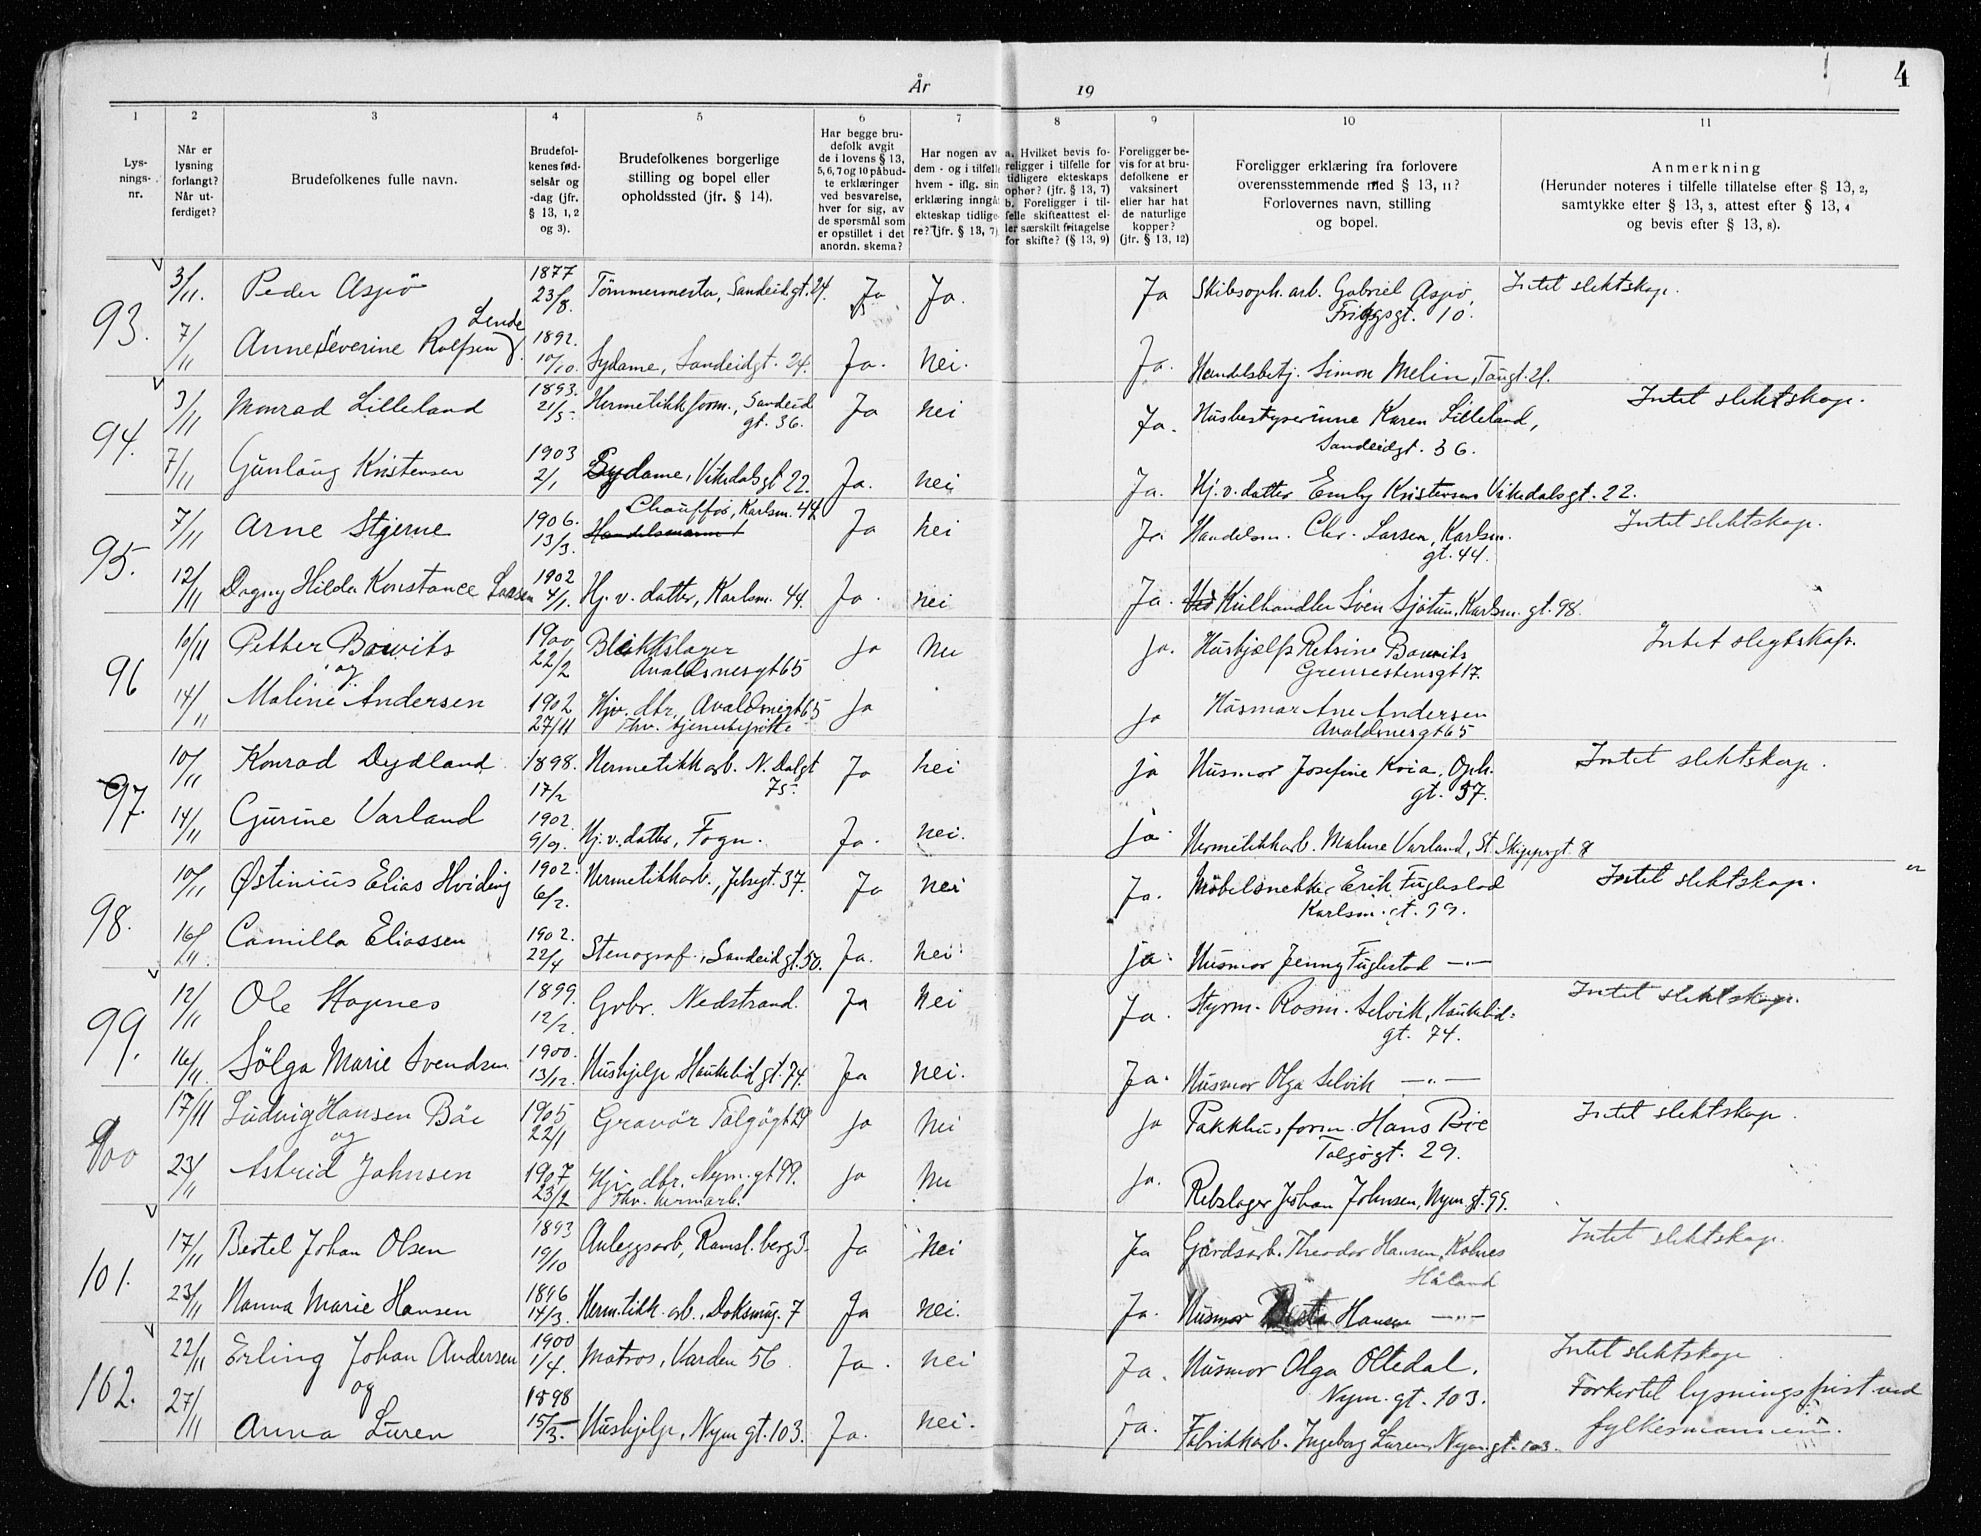 År 19
4
1 2 3 4 5 6 7 8 9 10 11
Lys-
nings-
nr.
Når er
lysning
forlangt?
Når ut-
ferdiget?
Brudefolkenes fulle navn.
Brudefol-
kenes fød-
selsår og
-dag (jfr.
§ 13, 1, 2
og 3).
Brudefolkenes borgerlige
stilling og bopel eller
opholdssted (jfr. § 14).
Har begge bru-
defolk avgit
de i lovens § 13,
5, 6, 7 og 10 påbud-
te erklæringer
ved besvarelse,
hver for sig, av
de spørsmål som
er opstillet i det
anordn. skema?
Har nogen av
dem - og i tilfelle
hvem - iflg. sin
erklæring inngåt
ekteskap tidlige-
re? (jfr. § 13, 7)
a. Hvilket bevis fo-
religger i tilfelle for
tidligere ekteskaps
ophør? (jfr. § 13, 7)
b. Foreligger i til-
felle skifteattest el-
ler særskilt fritagelse
for skifte? (§ 13, 9)
Foreligger be-
vis for at bru-
defolkene er
vaksinert
eller har hat
de naturlige
kopper?
(jfr. § 13, 12)
Foreligger erklæring fra forlovere
overensstemmende med § 13, 11?
Forlovernes navn, stilling
og bopel.
Anmerkning
(Herunder noteres i tilfelle tillatelse efter § 13, 2,
samtykke efter § 13, 3, attest efter § 13, 4
og bevis efter § 13, 8).
93. 3/11. Peder Aspø 1877 23/8. Tömmermester, Sandeidgt. 24. Ja Ja. Ja Skibsoph. arb. Gabriel Aspø, Friggsgt. 10. Intet slektskap.
7/11 Anne Severine Rolfsen Lende 1892. 10/10. Sydame, Sandeidgt. 24. Ja. Nei. Ja. Handelsbetj. Simon Melin, Taugt. 21.
94. 3/11 Monrad Lilleland 1893. 21/5- Hermetikkform., Sandeid gt. 36. Ja Nei Ja. Husbestyrerinne Karen Lilleland, Sandeidgt. 36. Intet slektskap.
7/11 Gunlaug Kristensen 1903 2/1 Sydame, Vikedalsgt 22. Ja. Nei Ja. Hj. v. datter Emly Kristensen Vikedalsgt. 22.
95. 7/11 Arne Stjerne 1906. 13/3. Chauffør, Karlsm. 44. Handelsmann Ja Nei Ja Handelsm. Chr. Larsen, Karlsm. gt. 44. Intet slektskap.
12/11 Dagny Hilda Konstance Larsen 1902 4/1. Hj. v. datter, Karlsm. 44. Ja. Nei Ja. Ved Kulhandler Sven Sjøtun, Karlsm. gt. 98.
96 10/11 Petter Bowits 1900 22/2 Blikkslager Avaldsnesgt 65 Ja Nei Ja. Hushjælp Retsine Bowits Grensestensgt 17. Intet slegtskap.
og
14/11 Maline Andersen 1902 27/11 Hjv. dtr. Avaldsnesgt 65 Ja Ja Husmor Ane Andersen Avaldsnesgt 65
97. 10/11 Konrad Dydland 1898. 17/2 Hermetikkarb. N. Dalgt 75. Ja Nei ja Husmor Josefine Kvia, Oph. gt. 37. Intet slektskap.
14/11 Gurine Varland 1902. 9/9. Hj. v. datter, Fogn. Ja. Nei. ja. Hermetikkarb. Malene Varland, St. Skippergt. 8
98. 10/11 Østinius Elias Hviding 1902. 6/2. Hermetikkarb., Jelsegt. 37. Ja Nei Ja. Møbelsnekker Erik Fuglestad Karlsm. gt. 99. Intet slektskap.
16/11. Camilla Eliassen 1902. 22/4 Stenograf, Sandeidgt. 50. Ja. Nei. ja. Husmor Jenny Fuglestad —"—
99. 12/11 Ole Hognes 1899. 12/2. Grbr. Nedstrand. Ja Nei Ja. Styrm. Rasm. Selvik, Haukelid- gt. 74. Intet slektskap.
16/11. Sölga Marie Svendsen 1900. 13/12. Hushjelp Haukelid gt. 74. Ja Nei. Ja. Husmor Olga Selvik —"—
100 17/11 Ludvig Hansen Böe 1905 22/1 Gravör Talgøgt 29 Ja Nei Ja Pakkhusform. Hans Böe Talgøgt. 29. Intet slektskap.
og
23/11 Astrid Johnsen 1907 23/2 Hjv. dtr. Nym. gt 99. Ja Nei Ja. Rebslager Johan Johnsen, Nym. gt. 99.
101. 17/11 Bertel Johan Olsen 1893 19/10 Anleggsarb, Ramsl. berg 3. Ja Nei Ja Gårdsarb. Theodor Hansen, Kolnes Håland Intet slektskap.
23/11 Nanna Marie Hansen 1896 14/3. Herm.tikk. arb., Doksmug. 7 Ja Nei. Ja. Husmor Berta Hansen —"—
102. 22/11 Erling Johan Andersen 1900 1/4. Matros, Varden 56 Ja. Nei Ja. Husmor Olga Oltedal. Nym. gt. 103. Intet slektskap
Forkortet lysningsfrist ved
fylkesmannen.
og
27/11 Anna Luren 1898 15/3. Hushjelp, Nym gt. 103. Ja. Nei. Ja. Fabrikkarb. Ingeborg Luren, Nym. gt. 103.